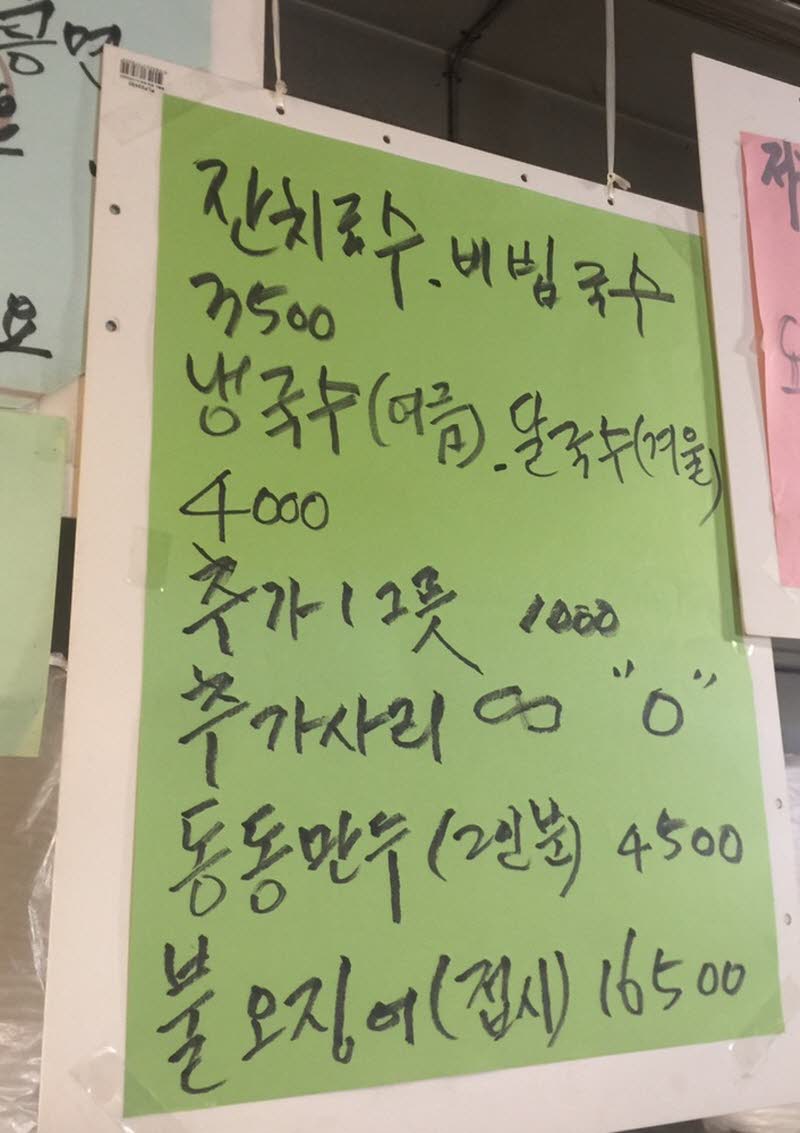 잔치국수.비빔국수
3500
냉국수(여름).알국수(겨울)
4000
추가 1그릇 1000
추가사리 ∞ "0"
동동만두(2인분) 4500
불오징어(접시) 16500
요